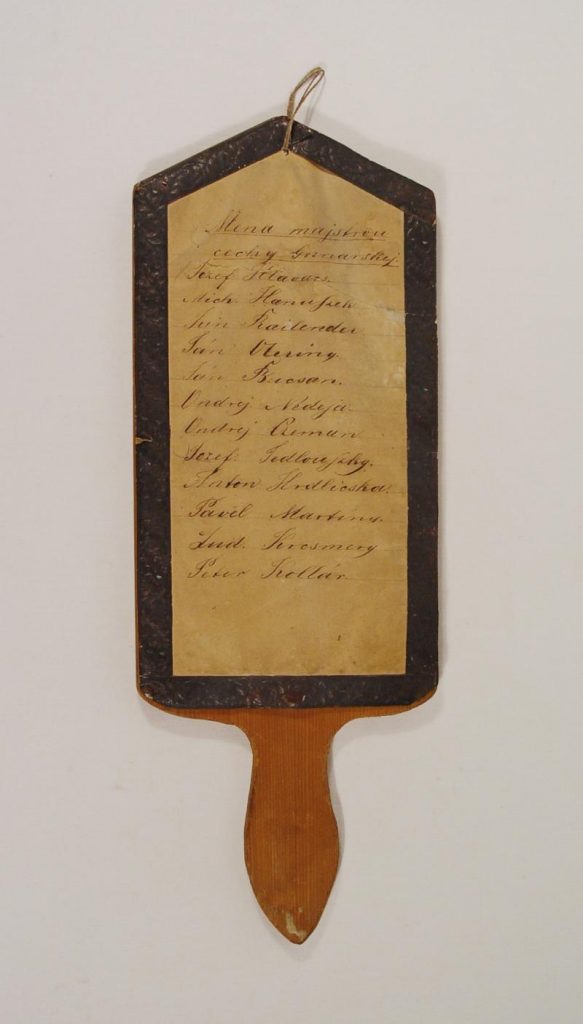 Mena majstrou
cechy Gunarskej
Jozef
Mich. Hanuszek
Ján Kailender
Ján
Ján Bucsan.
Ondrej Nédeja.
Ondrej Czeman
Jozef. Sedlouszky.
Anton Hrdlicska.
Pavel Martiny.
Lud. Krcsmery
Peter Kollár